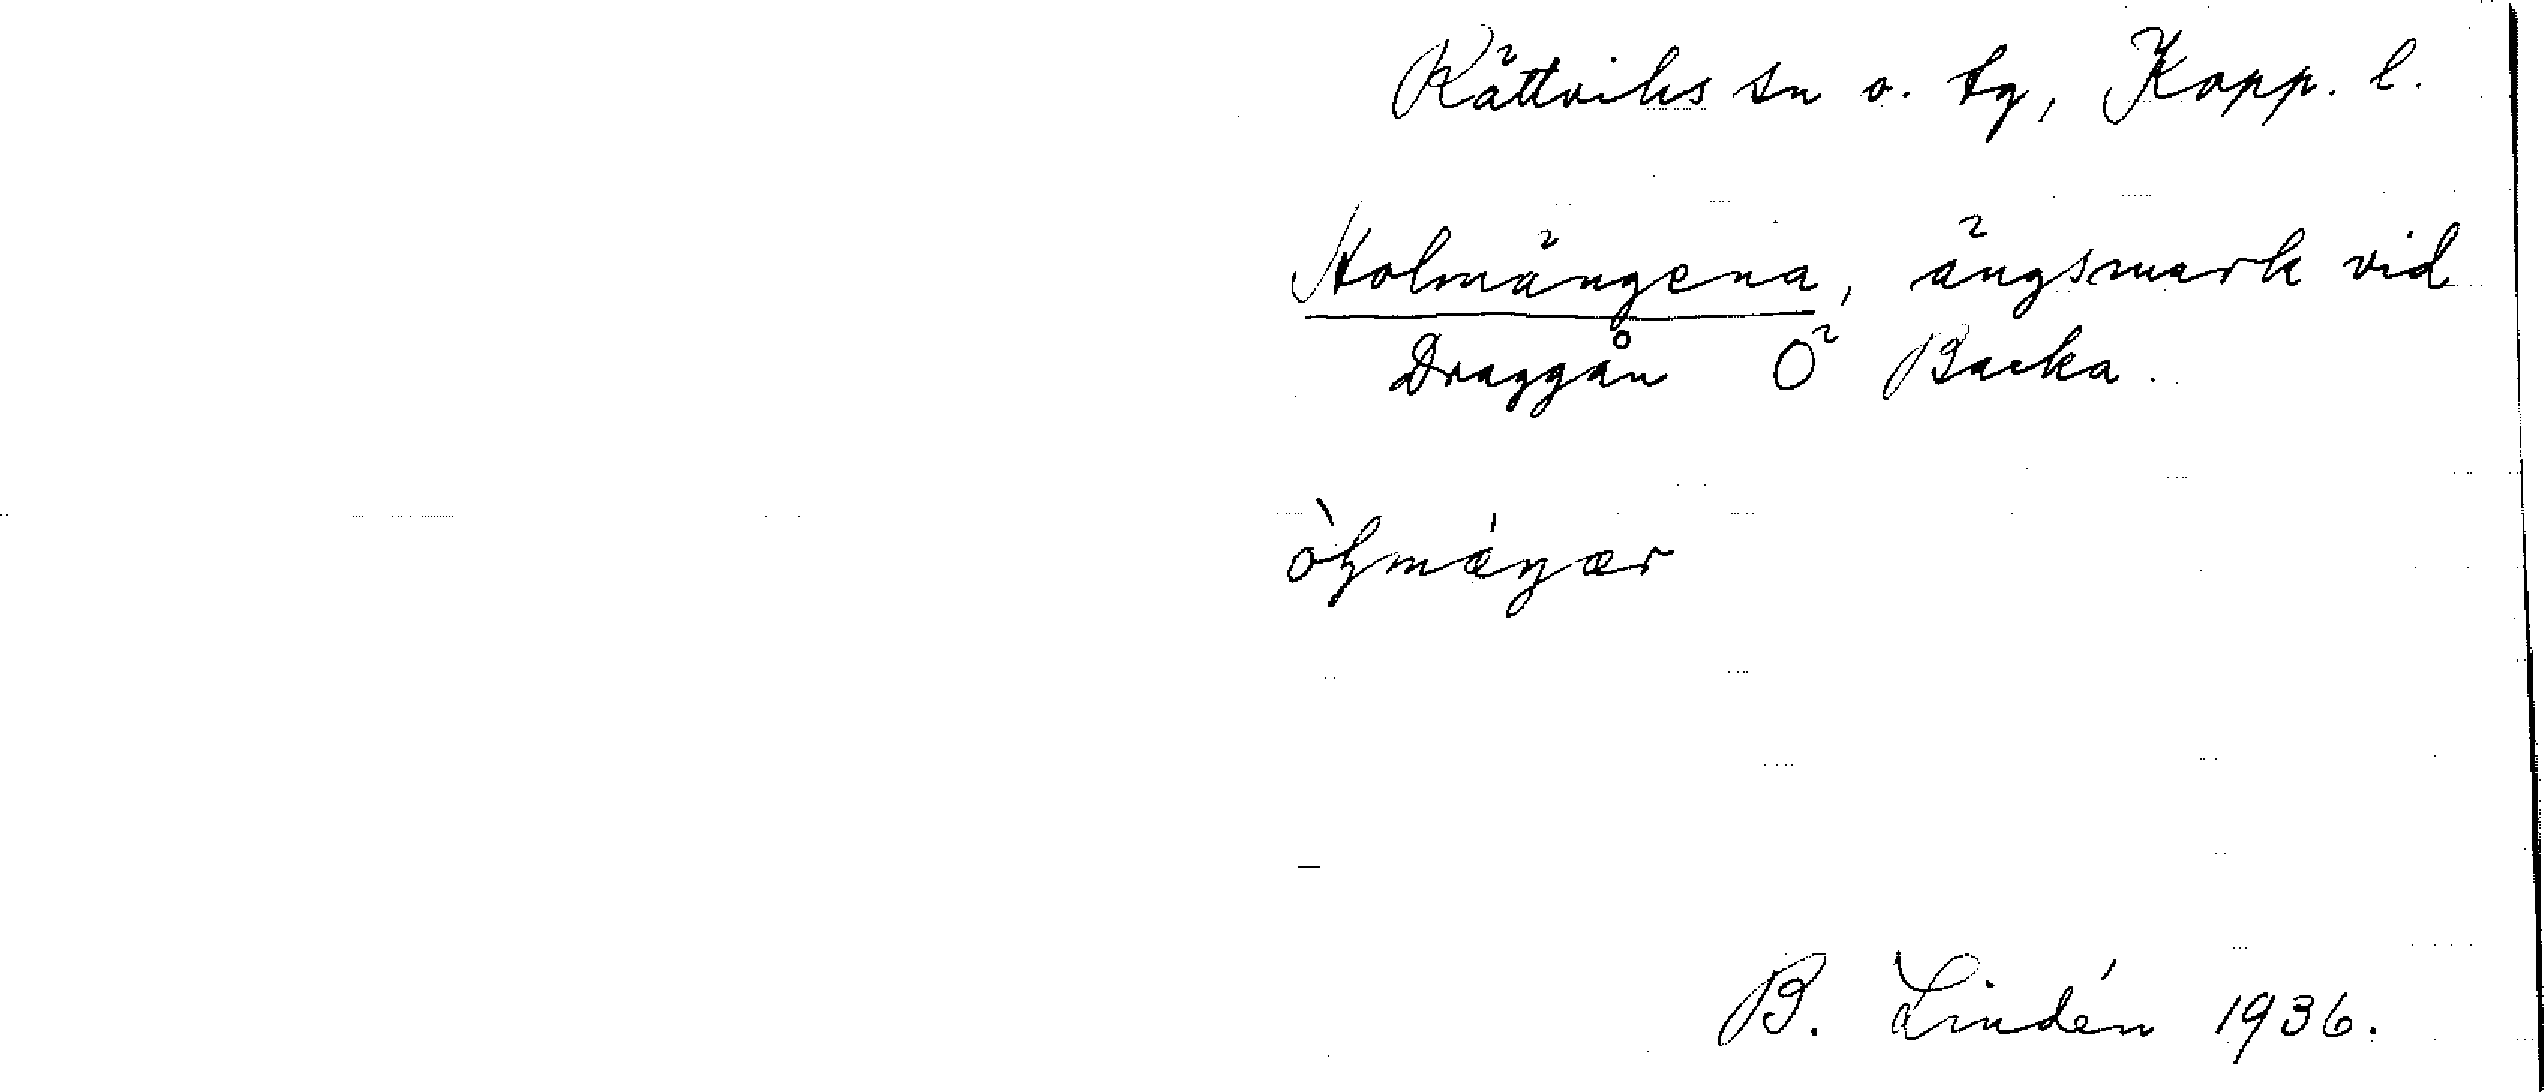 Rättviks sn o. tg, Kopp. l.
Holmängena, ängsmark vid
Draggån Ö Backa.
B. Lindén 1936.